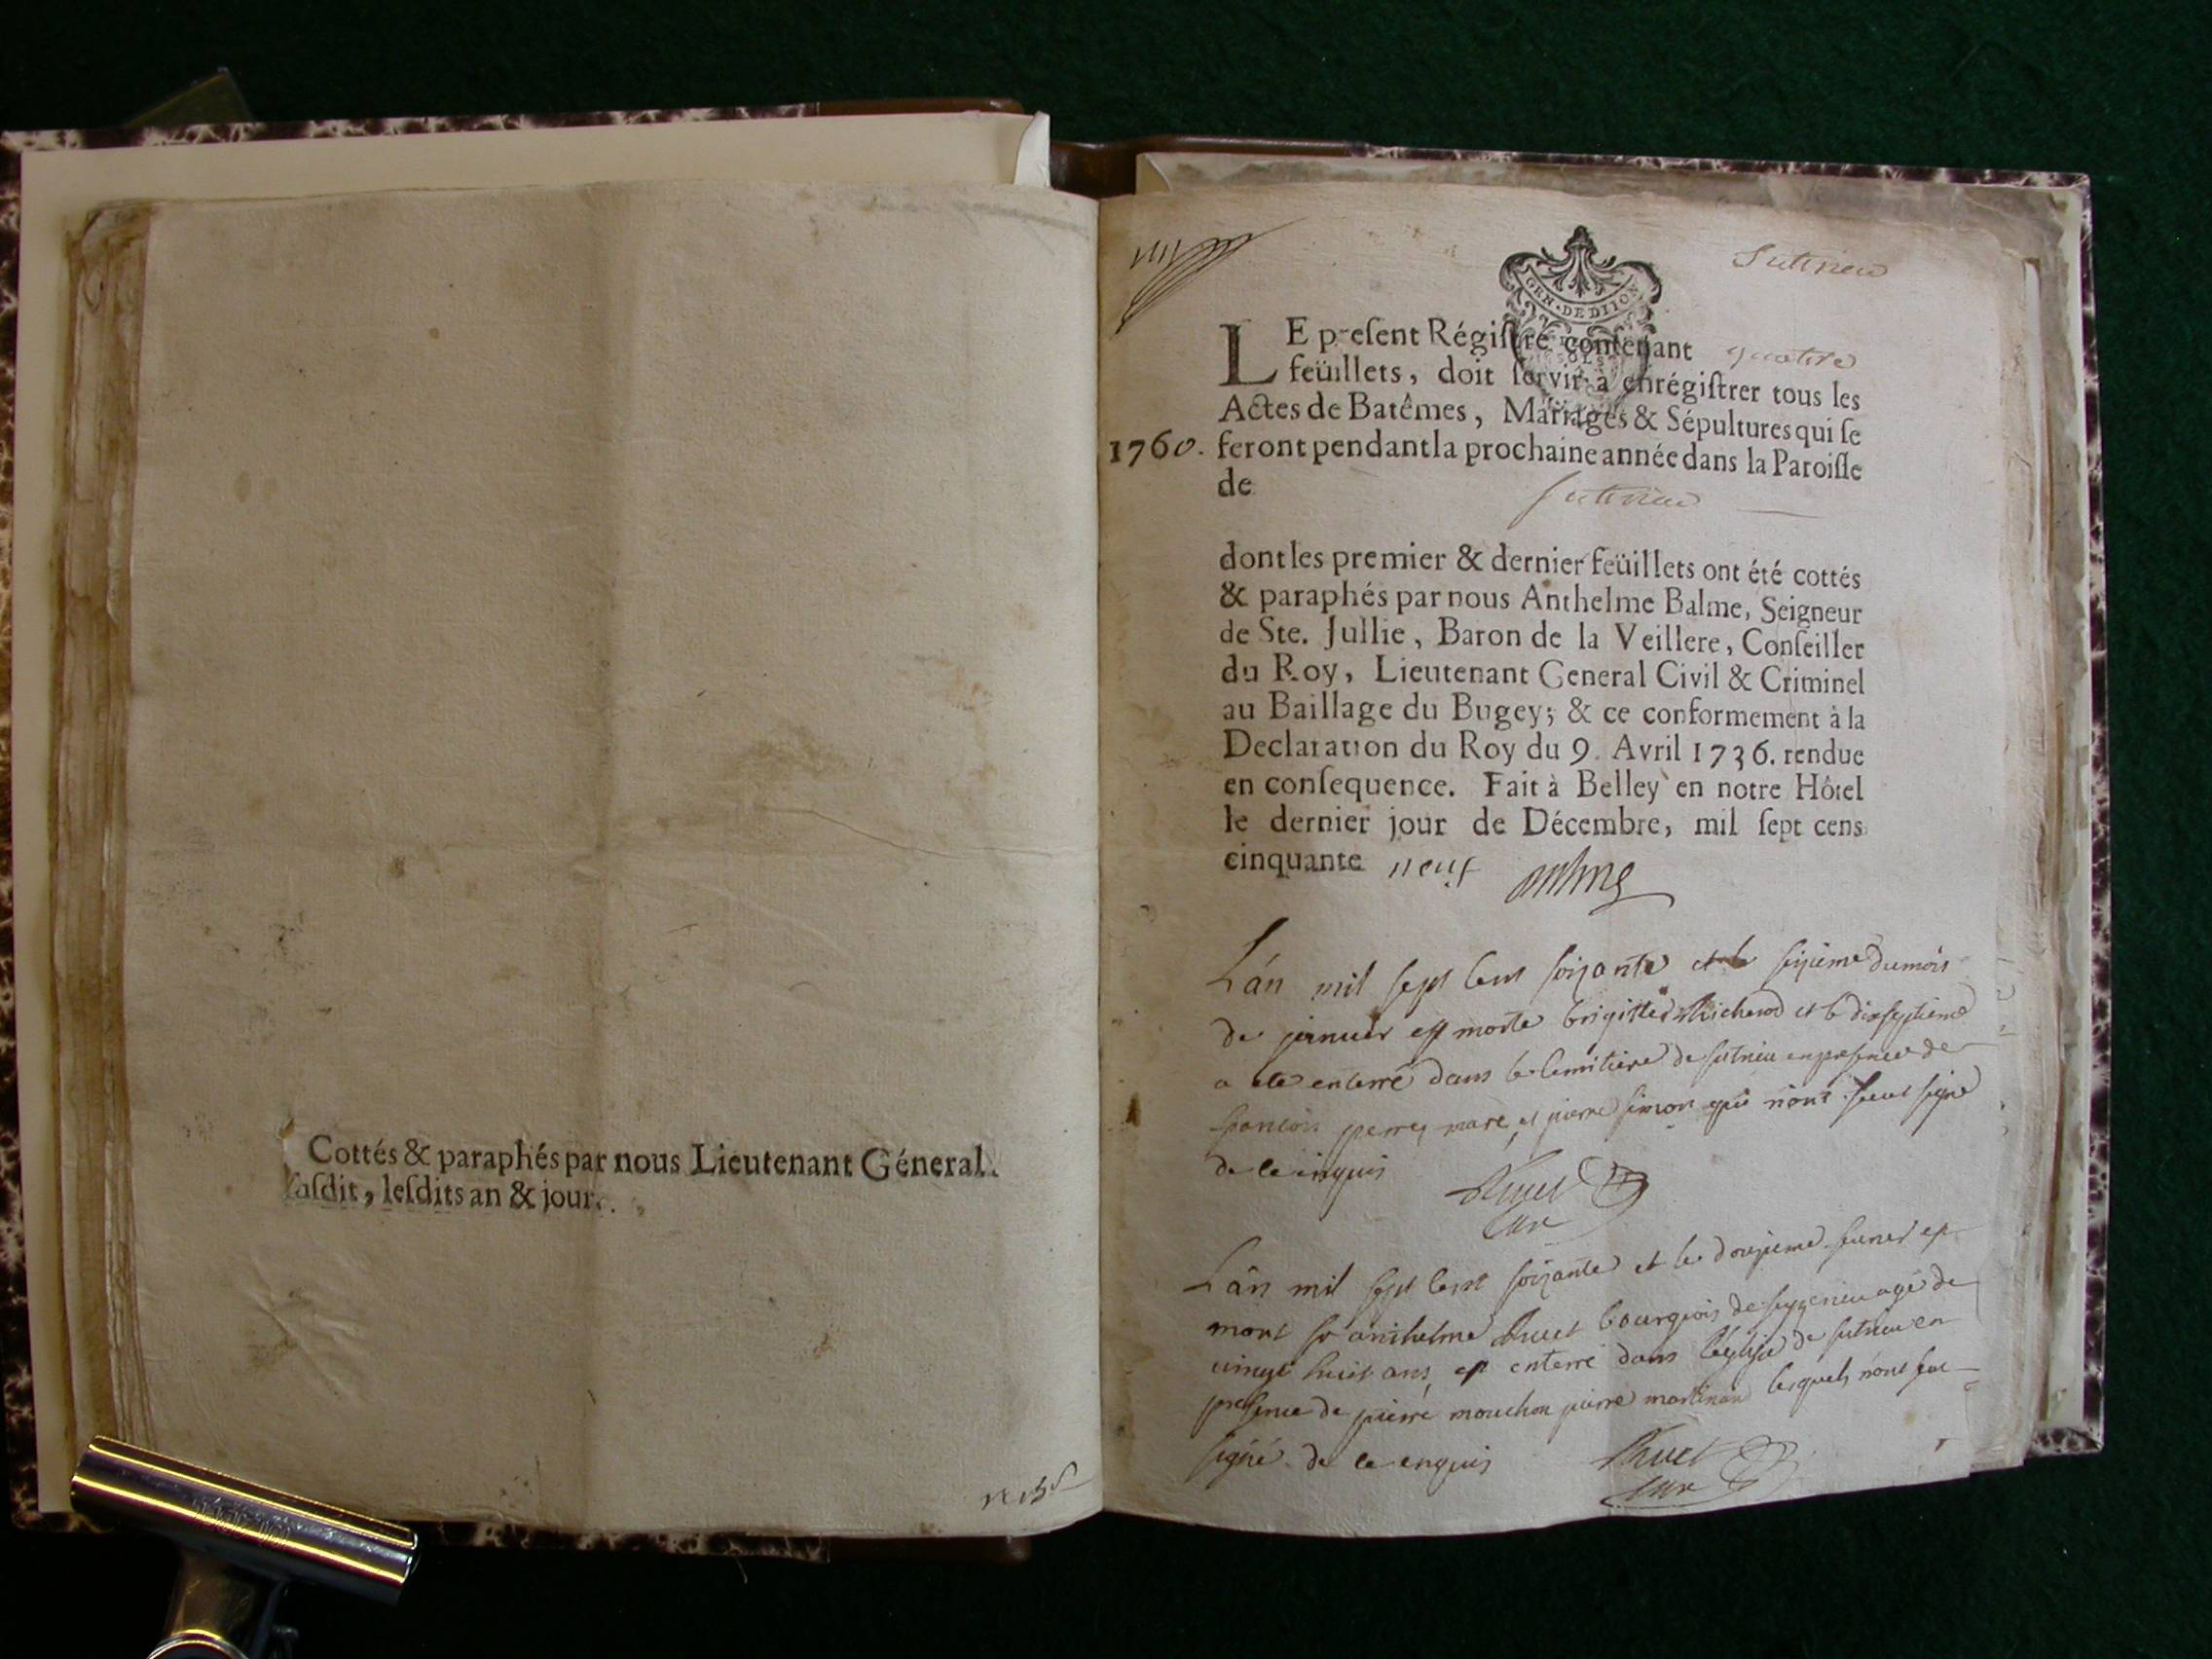 Cottés & paraphés par nous Lieutenant Géneral.
ſuſdit, leſdits an & jour.
Sutrieu
GEN. DE DIJON
LE preſent Régiſtre contenant quatre
feüillets, doit ſervir à enrégiſtrer tous les
Actes de Batêmes, Mariages & Sépultures qui ſe
1760. feront pendant la prochaine année dans la Paroiſſe
de
ſutrieu
dont les premier & dernier feüillets ont été cottés
& paraphés par nous Anthelme Balme, Seigneur
de Ste. Jullie, Baron de la Veillere, Conſeiller
du Roy, Lieutenant General Civil & Criminel
au Baillage du Bugey; & ce conformement à la
Declaration du Roy du 9. Avril 1736. rendue
en conſequence. Fait à Belley en notre Hôtel
le dernier jour de Décembre, mil ſept cens
cinquante neuf Balme
L'an mil sept cent soixante et le sixieme du mois
de janvier est morte brigitte Richerod et le dixseptieme
a ete enterré dans le cemitiere de sutrieu en presence de
francois perret marc et pierre simon qui n'ont sceut signé
de ce inquis
cur
L'an mil sept cent soixante et le douzieme fevrier est
mort sr anthelme bourgeois de agé de
vingt huit ans, est enterré dans l'eglise de sutrieu en
presence de pierre mouchon pierre martinan lesquels n'ont sceu
signé de ce enquis
cur